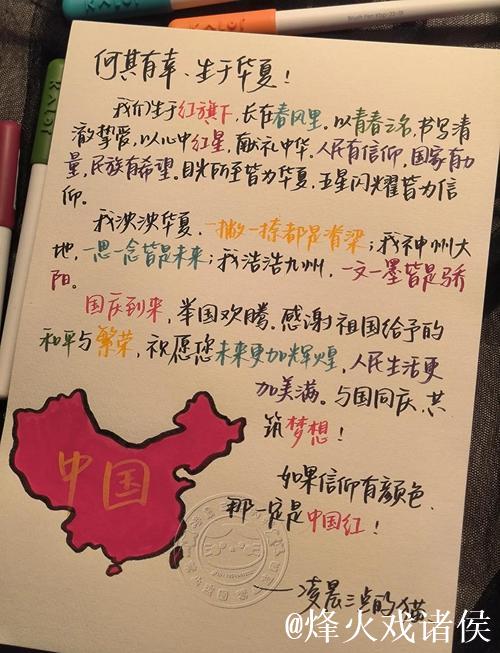 何其有幸、生于华夏!
我们生于红旗下,长在春风里。以青春之名,书写清
澈挚爱,以心中红星,献礼中华。人民有信仰,国家有力
量,民族有希望。目光所至皆为华夏,五星闪耀皆为信
仰。
我泱泱华夏,一撇一捺都是脊梁;我神州大
地,一思一念皆是未来;我浩浩九州,一文一墨皆是骄
阳。
国庆到来,举国欢腾。感谢祖国给予的
和平与繁荣,祝愿您未来更加辉煌,人民生活更
加美满。与国同庆,共
筑梦想!
中国
如果信仰有颜色,
那一定是中国红!
——凌晨三点的猫
@烽火戏诸侯